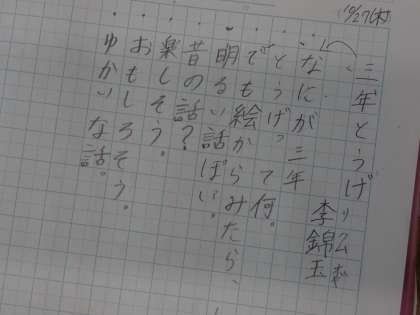 10/27(木)
三年とうげ
李錦玉
なにが三年
とうげって何。
でも絵からみたら、
明るい話ぽい。
昔の話?
楽しそう。
おもしろそう。
ゆかいな話。